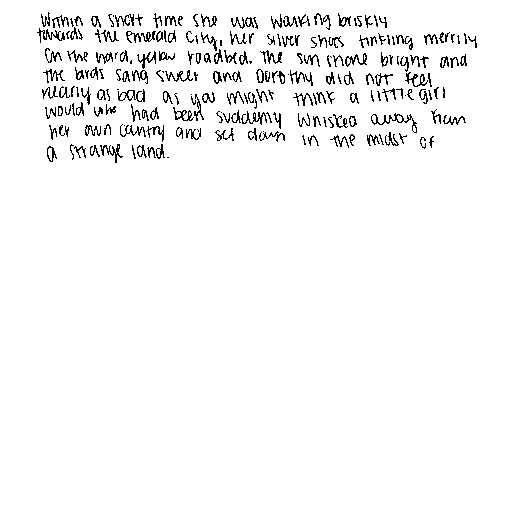 Within a short time she was walking briskly
towards the Emerald City, her silver shoes tinkling merrily
on the hard, yellow roadbed. The sun shone bright and
the birds sang sweet and Dorothy did not feel
nearly as bad as you might think a little girl
would who had been suddenly whisked away from
her own country and set down in the midst of
a strange land.